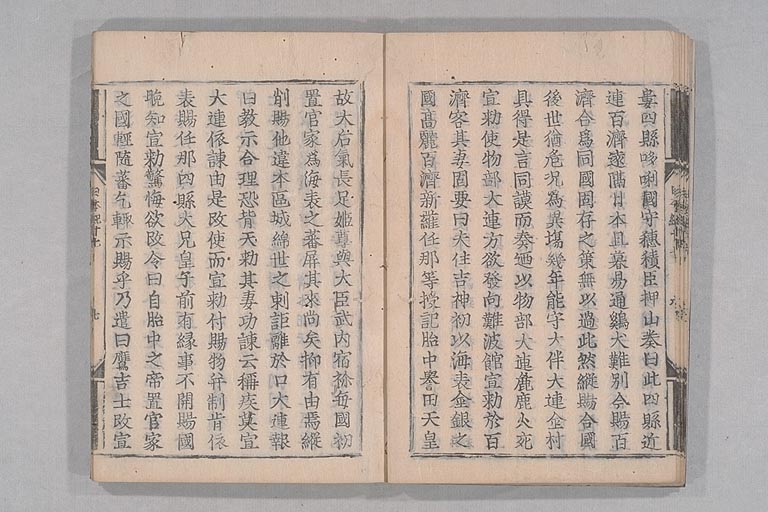 婁四縣哆唎國守穗積臣押山奏曰此四縣近
連百濟遠隔日本旦暮易通鷄犬難別今賜百
濟合爲同國固存之策無以過此然縱賜合國
後世猶危况爲異塲幾年能守大伴大連金村
具得是言同謨而奏廼以物部大連麁鹿火宛
宣勅使物部大連方欲發向難波館宣勅於百
濟客其妻固要曰夫住吉神初以海表金銀之
國高麗百濟新羅任那等授記胎中譽田天皇
故大后氣長足姬尊與大臣武内宿祢每國初
置官家爲海表之蕃屏其來尚矣抑有由焉縱
削賜他違本區域綿世之刺詎離於口大連報
曰教示合理恐背天勅其妻功諫云稱疾莫宣
大連依諫由是改使而宣勅付賜物并制旨依
表賜任那四縣大兄皇子前有緣事不開賜國
晩知宣勅驚悔欲改令曰自胎中之帝置官家
之國輕隨蕃乞輙示賜乎乃遣日鷹吉士改宣